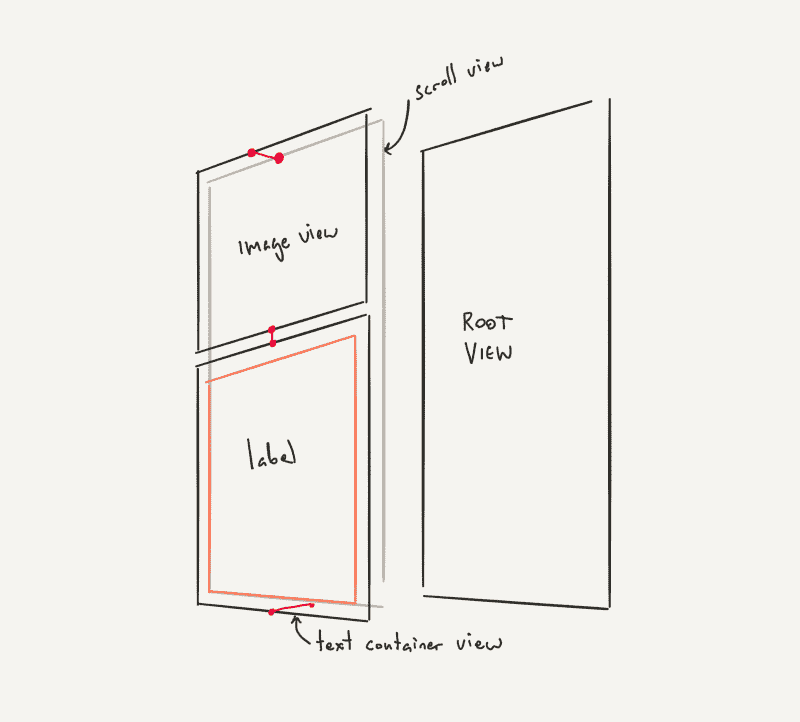 scroll view
image view
ROOT
VIEW
label
text container view